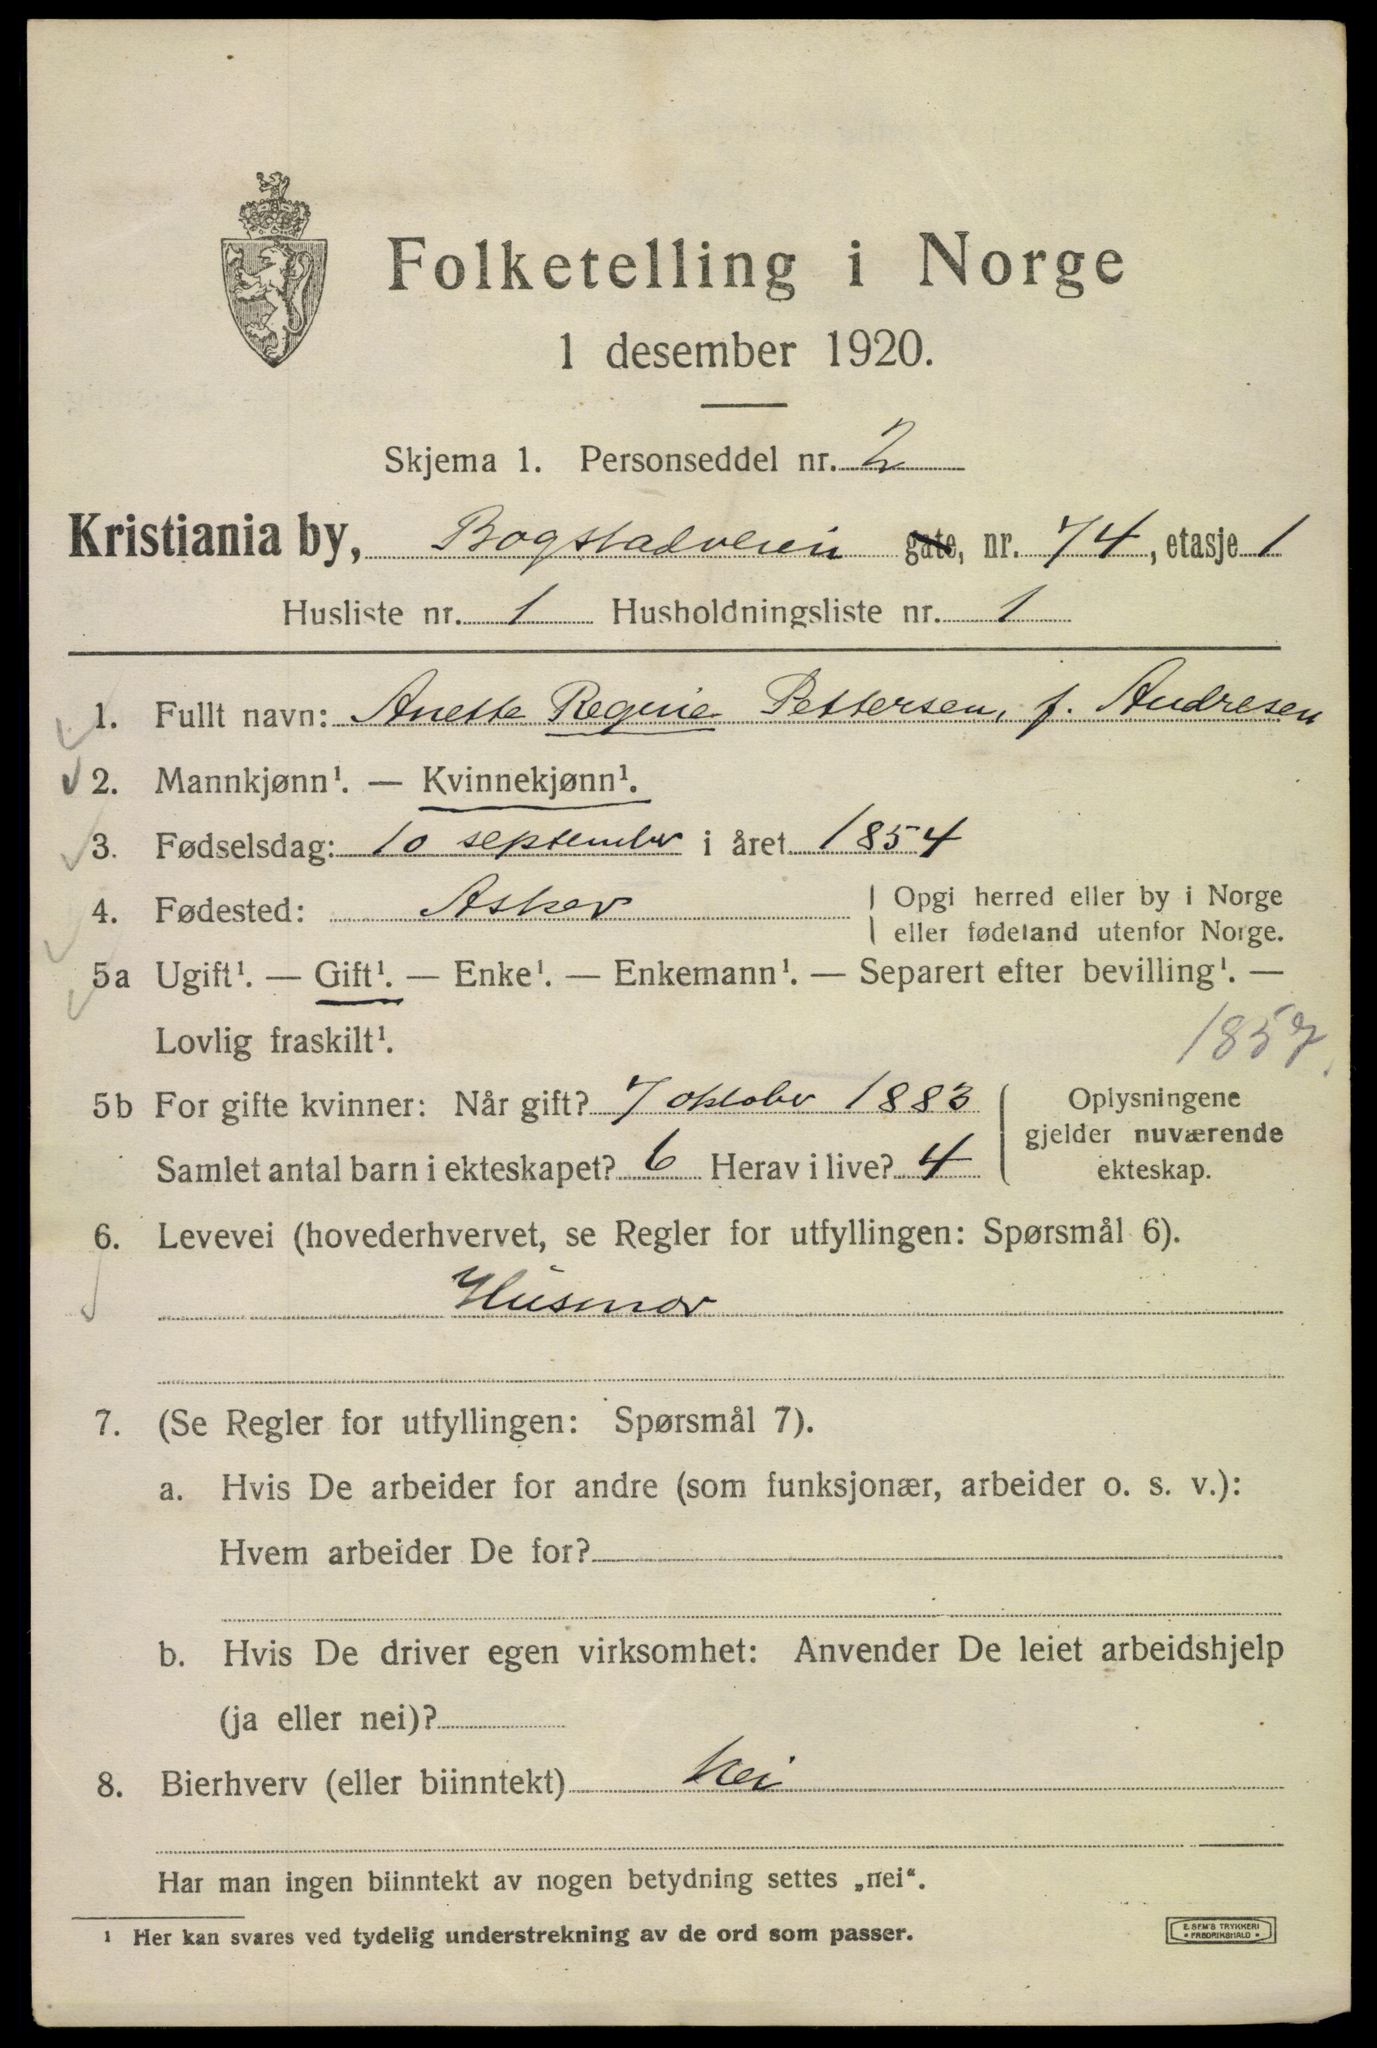 Folketelling i Norge
1 desember 1920.
Skjema 1. Personseddel nr. 2
Kristiania by, Bogstadveien gate, nr. 74, etasje 1
Husliste nr. 1 Husholdningsliste nr. 1
1. Fullt navn: Anette Regine Pettersen, f. Andresen
2. Mannkjønn¹. — Kvinnekjønn¹.
3. Fødselsdag: 10 september i året 1854
4. Fødested: Asker
Opgi herred eller by i Norge
eller fødeland utenfor Norge.
5a Ugift¹. — Gift¹. — Enke¹. — Enkemann¹. — Separert efter bevilling¹. —
Lovlig fraskilt¹.
1857
5b For gifte kvinner: Når gift? 7 oktober 1883
Samlet antal barn i ekteskapet? 6 Herav i live? 4
Oplysningene
gjelder nuværende
ekteskap.
6. Levevei (hovederhvervet, se Regler for utfyllingen: Spørsmål 6).
Husmor
7. (Se Regler for utfyllingen: Spørsmål 7).
a. Hvis De arbeider for andre (som funksjonær, arbeider o. s. v.):
Hvem arbeider De for?
b. Hvis De driver egen virksomhet: Anvender De leiet arbeidshjelp
(ja eller nei)?
8. Bierhverv (eller biinntekt) Nei
Har man ingen biinntekt av nogen betydning settes „nei“.
¹ Her kan svares ved tydelig understrekning av de ord som passer.
E. SEM'S TRYKKERI
FREDRIKSHALD